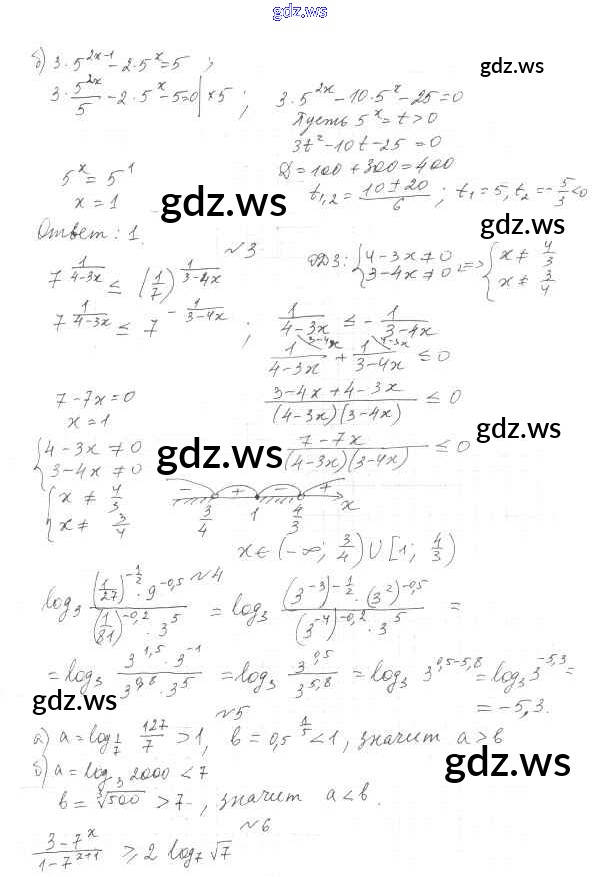 gdz.ws
б) 3·5^(2x-1) - 2·5^x = 5 ;
gdz.ws
3·5^(2x)/5 - 2·5^x - 5 = 0 | ×5 ; 3·5^(2x) - 10·5^x - 25 = 0
Пусть 5^x = t > 0
3t² - 10t - 25 = 0
5^x = 5^1 D = 100 + 300 = 400
x = 1 t₁,₂ = (10 ± 20)/6 ; t₁ = 5, t₂ = -5/3 < 0
gdz.ws
Ответ: 1.
№3
7^(1/(4-3x)) ≤ (1/7)^(1/(3-4x)) ОДЗ: {4-3x ≠ 0 3-4x ≠ 0 => {x ≠ 4/3 x ≠ 3/4
7^(1/(4-3x)) ≤ 7^(-1/(3-4x)) ; 1/(4-3x) ≤ -1/(3-4x)
1/(4-3x) + 1/(3-4x) ≤ 0
7-7x = 0 (3-4x+4-3x)/((4-3x)(3-4x)) ≤ 0
x = 1
gdz.ws
{4-3x ≠ 0 3-4x ≠ 0 gdz.ws (7-7x)/((4-3x)(3-4x)) ≤ 0
{x ≠ 4/3 x ≠ 3/4 - + - +
3/4 1 4/3 x
x ∈ (-∞; 3/4) ∪ [1; 4/3)
№4
log₃ ((1/27)^(-1/2)·9^(-0,5))/((1/81)^(-0,2)·3^5) = log₃ ((3^(-3))^(-1/2)·(3²)^(-0,5))/((3^(-4))^(-0,2)·3^5) =
= log₃ (3^(1,5)·3^(-1))/(3^(0,8)·3^5) = log₃ 3^(0,5)/3^(5,8) = log₃ 3^(0,5-5,8) = log₃ 3^(-5,3) =
gdz.ws
= -5,3.
№5
а) a = log_(1/7) 127/7 > 1, b = 0,5^(1/5) < 1, значит a > b
б) a = log₃ 2000 < 7
gdz.ws
b = ³√500 > 7, значит a < b.
№6
(3-7^x)/(1-7^(x+1)) ≥ 2 log₇ √7